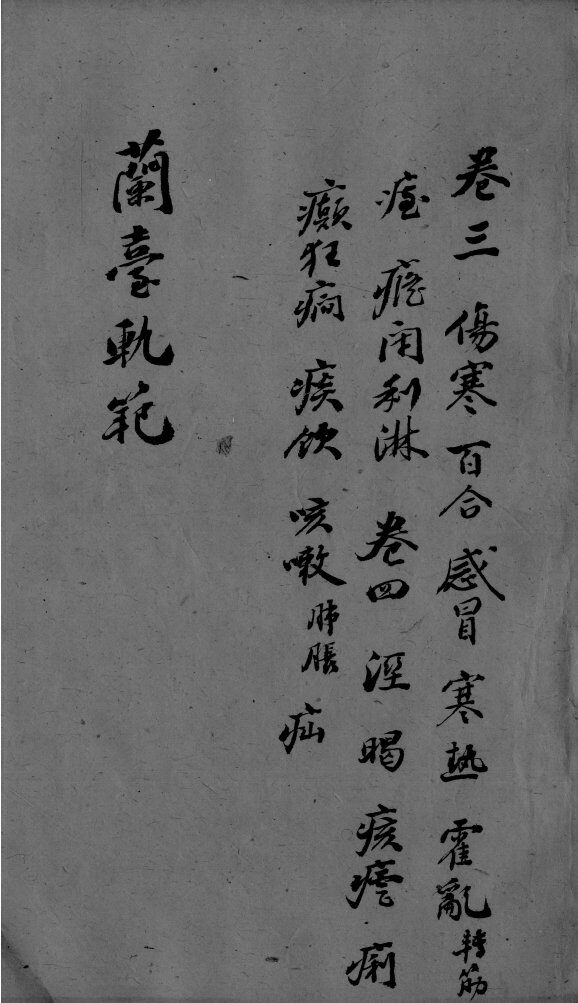 卷三 傷寒 百合 感冒 寒熱 霍亂 轉筋
癃閉利淋 卷四 溼 暍 痎瘧 痢
癲狂癇 痰飲 咳嗽 肺脹 疝
蘭臺軌範